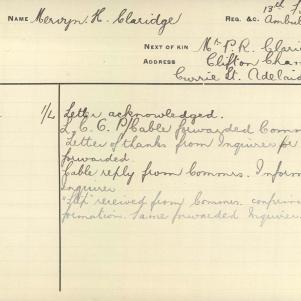 NAME Mervyn H. Claridge REG. &C. 13th F
Ambul
NEXT OF KIN Mr P. R. Clari
ADDRESS Clifton Cham
Currie St. Adelai
1/L Letter acknowledged.
L. C. G. P Cable forwarded Comm
Letter of thanks from Inquirer for
forwarded.
Cable reply from Commrs. Inform
Inquirer
received from Commrs. confirm
formation. Same forwarded Inquirer